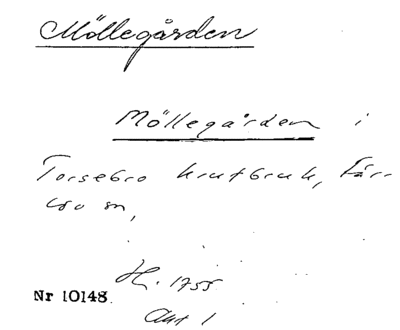 Möllegården
Möllegården i
Torsebro krutbruk, Fär-
lövs sn,
H. 1755
Nr 10148
Akt 1